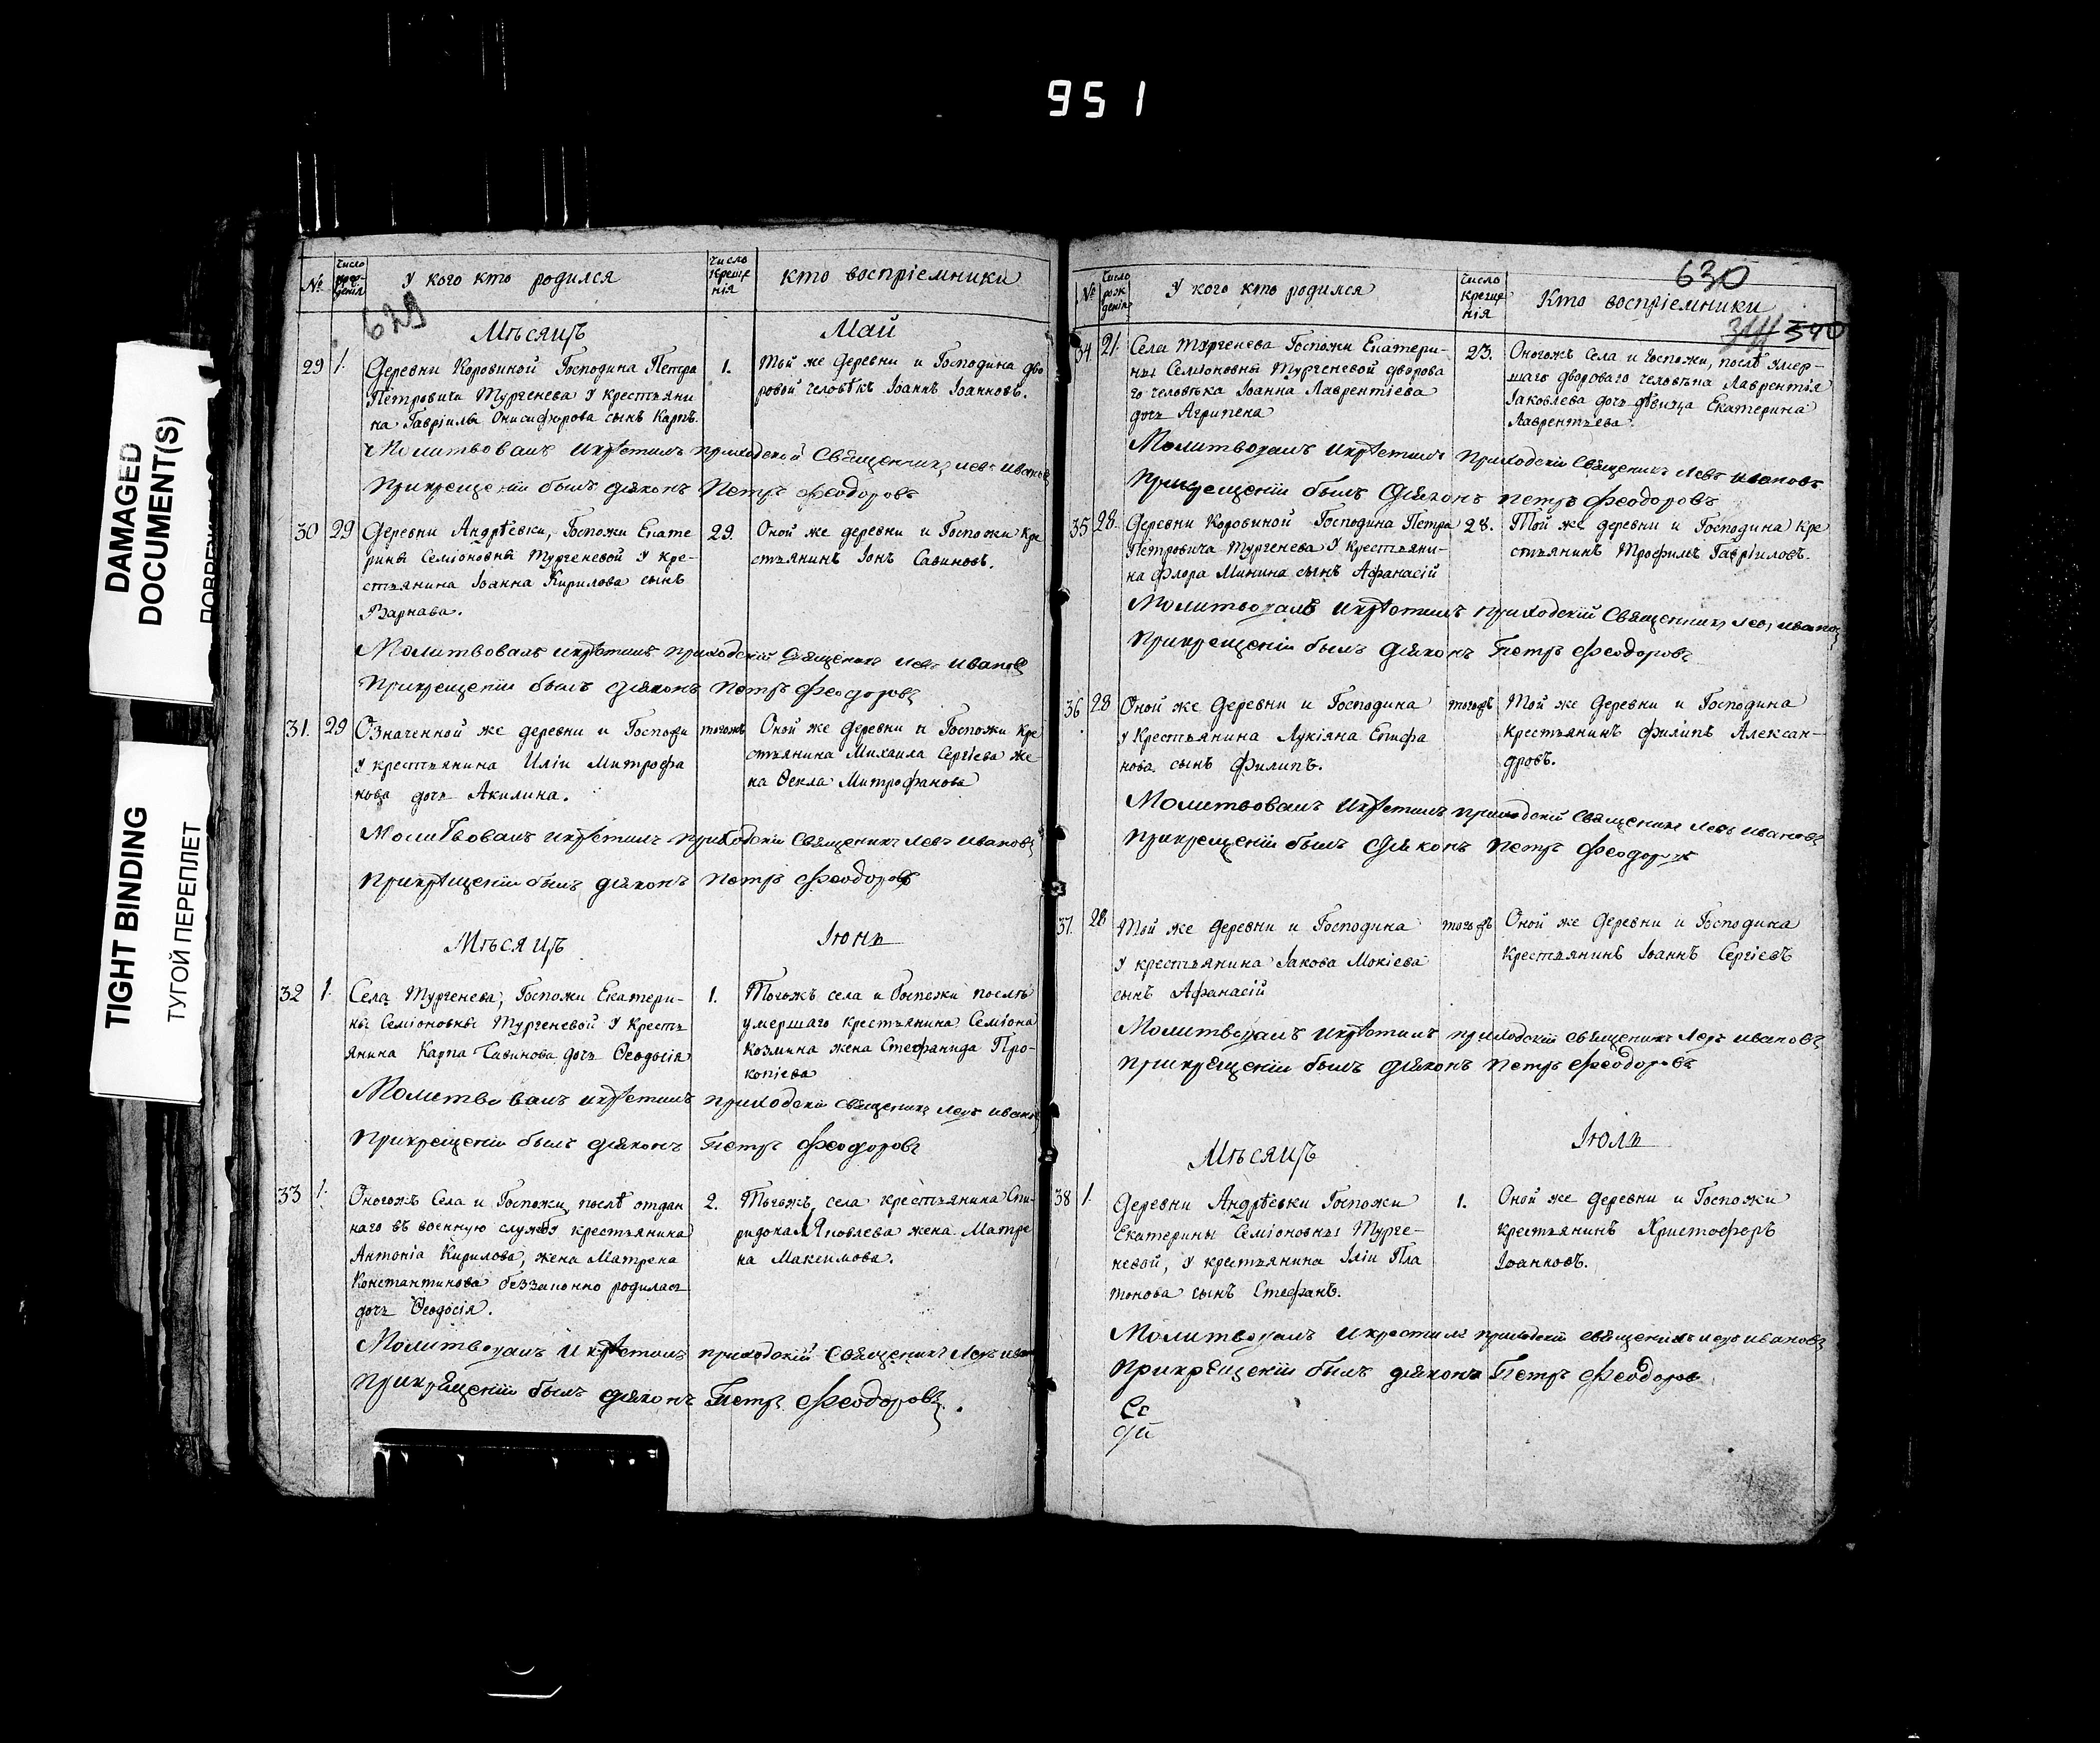 951
DAMAGED
DOCUMENT(S)
TIGHT BINDING
ТУГОЙ ПЕРЕПЛЕТ
№
число
рождения
У кого кто родился
число
креще
нія
кто воспріемники
629
Мѣсяцъ
Май
29
1.
Деревни Коровиной Господина Петра
Петровича Тургенева у крестьяни
на Гавріила Онисифорова сынъ Карпъ.
1.
Той же деревни и Господина дво
ровой человѣкъ Іоаннъ Іоанновъ.
Молитвовалъ и крѣстилъ приходской Священникъ Левъ Ивановъ
При крещеніи былъ діяконъ Петръ Феодоровъ
30
29
Деревни Андрѣевки, Госпожи Екате
рины Семіоновны Тургеневой у кре-
стьянина Іоанна Кирилова сынъ
Варнава.
29.
Оной же деревни и Госпожи кре
стьянинъ Іонъ Савиновъ.
Молитвовалъ и крѣстилъ приходскій Священикъ Левъ Ивановъ
При крещеніи былъ діяконъ Петръ Феодоровъ
31.
29
Означенной же деревни и Госпожи
у крестьянина Иліи Митрофа
нова дочь Акилина.
тогожъ
Оной же деревни и Госпожи кре
стьянина Михаила Сергіева же
на Ѳекла Митрофанова
Молитвовалъ и крѣстилъ приходскій Священикъ Левъ Ивановъ
При крѣщеніи былъ діяконъ Петръ Феодоровъ
Мѣсяцъ
Іюнь
32
1.
Села Тургенева, Госпожи Екатери-
ны Семіоновны Тургеневой у кресть
янина Карпа Савинова дочь Ѳеодосія
1.
Тогожъ села и Госпожи послѣ
умершаго крестьянина Семіона
Козмина жена Стефанида Про-
копіева
Молитвовалъ и крѣстилъ приходскій священикъ Левъ Ивановъ
При крещеніи былъ діяконъ Петръ Феодоровъ
33
1.
Оногожъ Села и Госпожи, послѣ отдан
наго въ военную службу крестьянина
Антонія Кирилова, жена Матрена
Константинова беззаконно родилась
дочь Ѳеодосія.
2.
Тогожъ села крестьянина Спи-
ридона Яковлева жена Матре
на Максимова.
Молитвовалъ и крѣстилъ приходскій Священикъ Левъ Иванъ
При крѣщеніи былъ діяконъ Петръ Феодоровъ.
№
Число
рож
денія
У кого кто родился
Число
креще
нія
Кто воспріемники
630
340
34
21.
Села Тургенева Госпожи Екатери-
ны Семіоновны Тургеневой дворова
го человѣка Іоанна Лаврентіева
дочь Агрипена
23.
Оногожъ Села и Госпожи, послѣ умер-
шаго двороваго человѣка Лаврентія
Іаковлева дочь дѣвица Екатерина
Лаврентьева.
Молитвовалъ и крѣстилъ приходскій Священикъ Левъ Ивановъ
При крещеніи былъ Діяконъ Петръ Феодоровъ
35
28.
Деревни Коровиной Господина Петра
Петровича Тургенева у крестьяни-
на Флора Минина сынъ Афанасій
28.
Той же деревни и Господина кре
стьянинъ Трофимъ Гавріиловъ.
Молитвовалъ и крѣстилъ приходскій Священникъ Левъ Ивановъ
При крещеніи былъ Діяконъ Петръ Феодоровъ
36
28
Оной же деревни и Господина
у крестьянина Лукіяна Епифа
нова сынъ Филипъ.
тогожъ
Той же деревни и Господина
крестьянинъ Филипъ Алексан-
дровъ.
Молитвовалъ и крѣстилъ приходскій Священикъ Левъ Ивановъ
При крещеніи былъ діяконъ Петръ Феодоровъ
37.
28
Той же деревни и Господина
у крестьянина Іакова Мокіева
сынъ Афанасій
тогожъ
Оной же деревни и Господина
крестьянинъ Іоаннъ Сергіевъ
Молитвовалъ и крѣстилъ приходскій священикъ Левъ Ивановъ
При крѣщеніи былъ діяконъ Петръ Феодоровъ
Мѣсяцъ
Іюль
38
1.
Деревни Андрѣевки Госпожи
Екатерины Семіоновны Турге-
невой, у крестьянина Іліи Пла
тонова сынъ Стефанъ.
1.
Оной же деревни и Госпожи
крестьянинъ Христофоръ
Іоанновъ.
Молитвовалъ и крестилъ приходскій священикъ Левъ Ивановъ
При крѣщеніи былъ діяконъ Петръ Феодоров